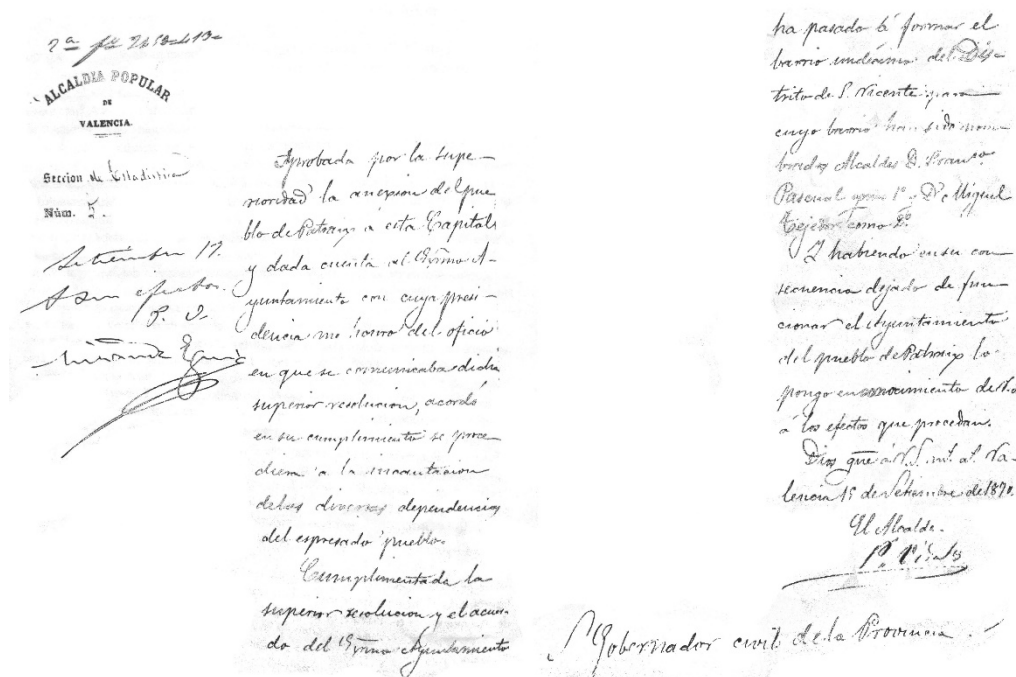 2ª
ALCALDIA POPULAR
DE
VALENCIA.
Seccion de Estadistica
Núm. 5.
Setiembre 17.
A sus efectos.
P. O.
Aprobada por la supe-
rioridad la anexion del pue-
blo de Patraix á esta Capital
y dada cuenta al Exmo A-
yuntamiento con cuya presi-
dencia me honro del oficio
en que se comunicaba dicha
superior resolucion, acordó
en su cumplimiento se proce
diera á la incautacion
de las diversas dependencias
del espresado pueblo.
Cumplimentada la
superior resolucion y el acuer-
do del Exmo Ayuntamiento
ha pasado á formar el
barrio undécimo del Dis-
trito de S. Vicente para
cuyo barrio han sido nom-
brados Alcaldes D. Franco
Pascual como 1º y D. Miguel
Tejedor como 2º
Y habiendo en su con
secuencia dejado de fun-
cionar el Ayuntamiento
del pueblo de Patraix lo
pongo en conocimiento de V.S.
á los efectos que procedan.
Dios gue á V.S. m. a. Va-
lencia 15 de Setiembre de 1870.
El Alcalde.
Gobernador civil de la Provincia.